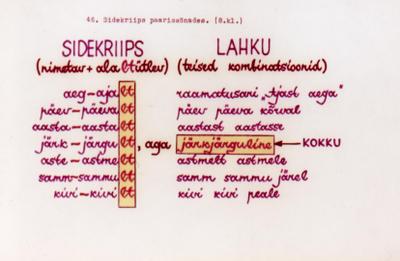 46. Sidekriips paarissõnades. (8.kl.)
SIDEKRIIPS LAHKU
(nimetav + alaltütlev) (teised kombinatsioonid)
aeg-ajalt raamatusari „Ajast aega"
päev-päevalt päev päeva kõrval
aasta-aastalt aastast aastasse
järk-järgult, aga järkjärguline ← KOKKU
aste-astmelt astmelt astmele
samm-sammult samm sammu järel
kivi-kivilt kivi kivi peale